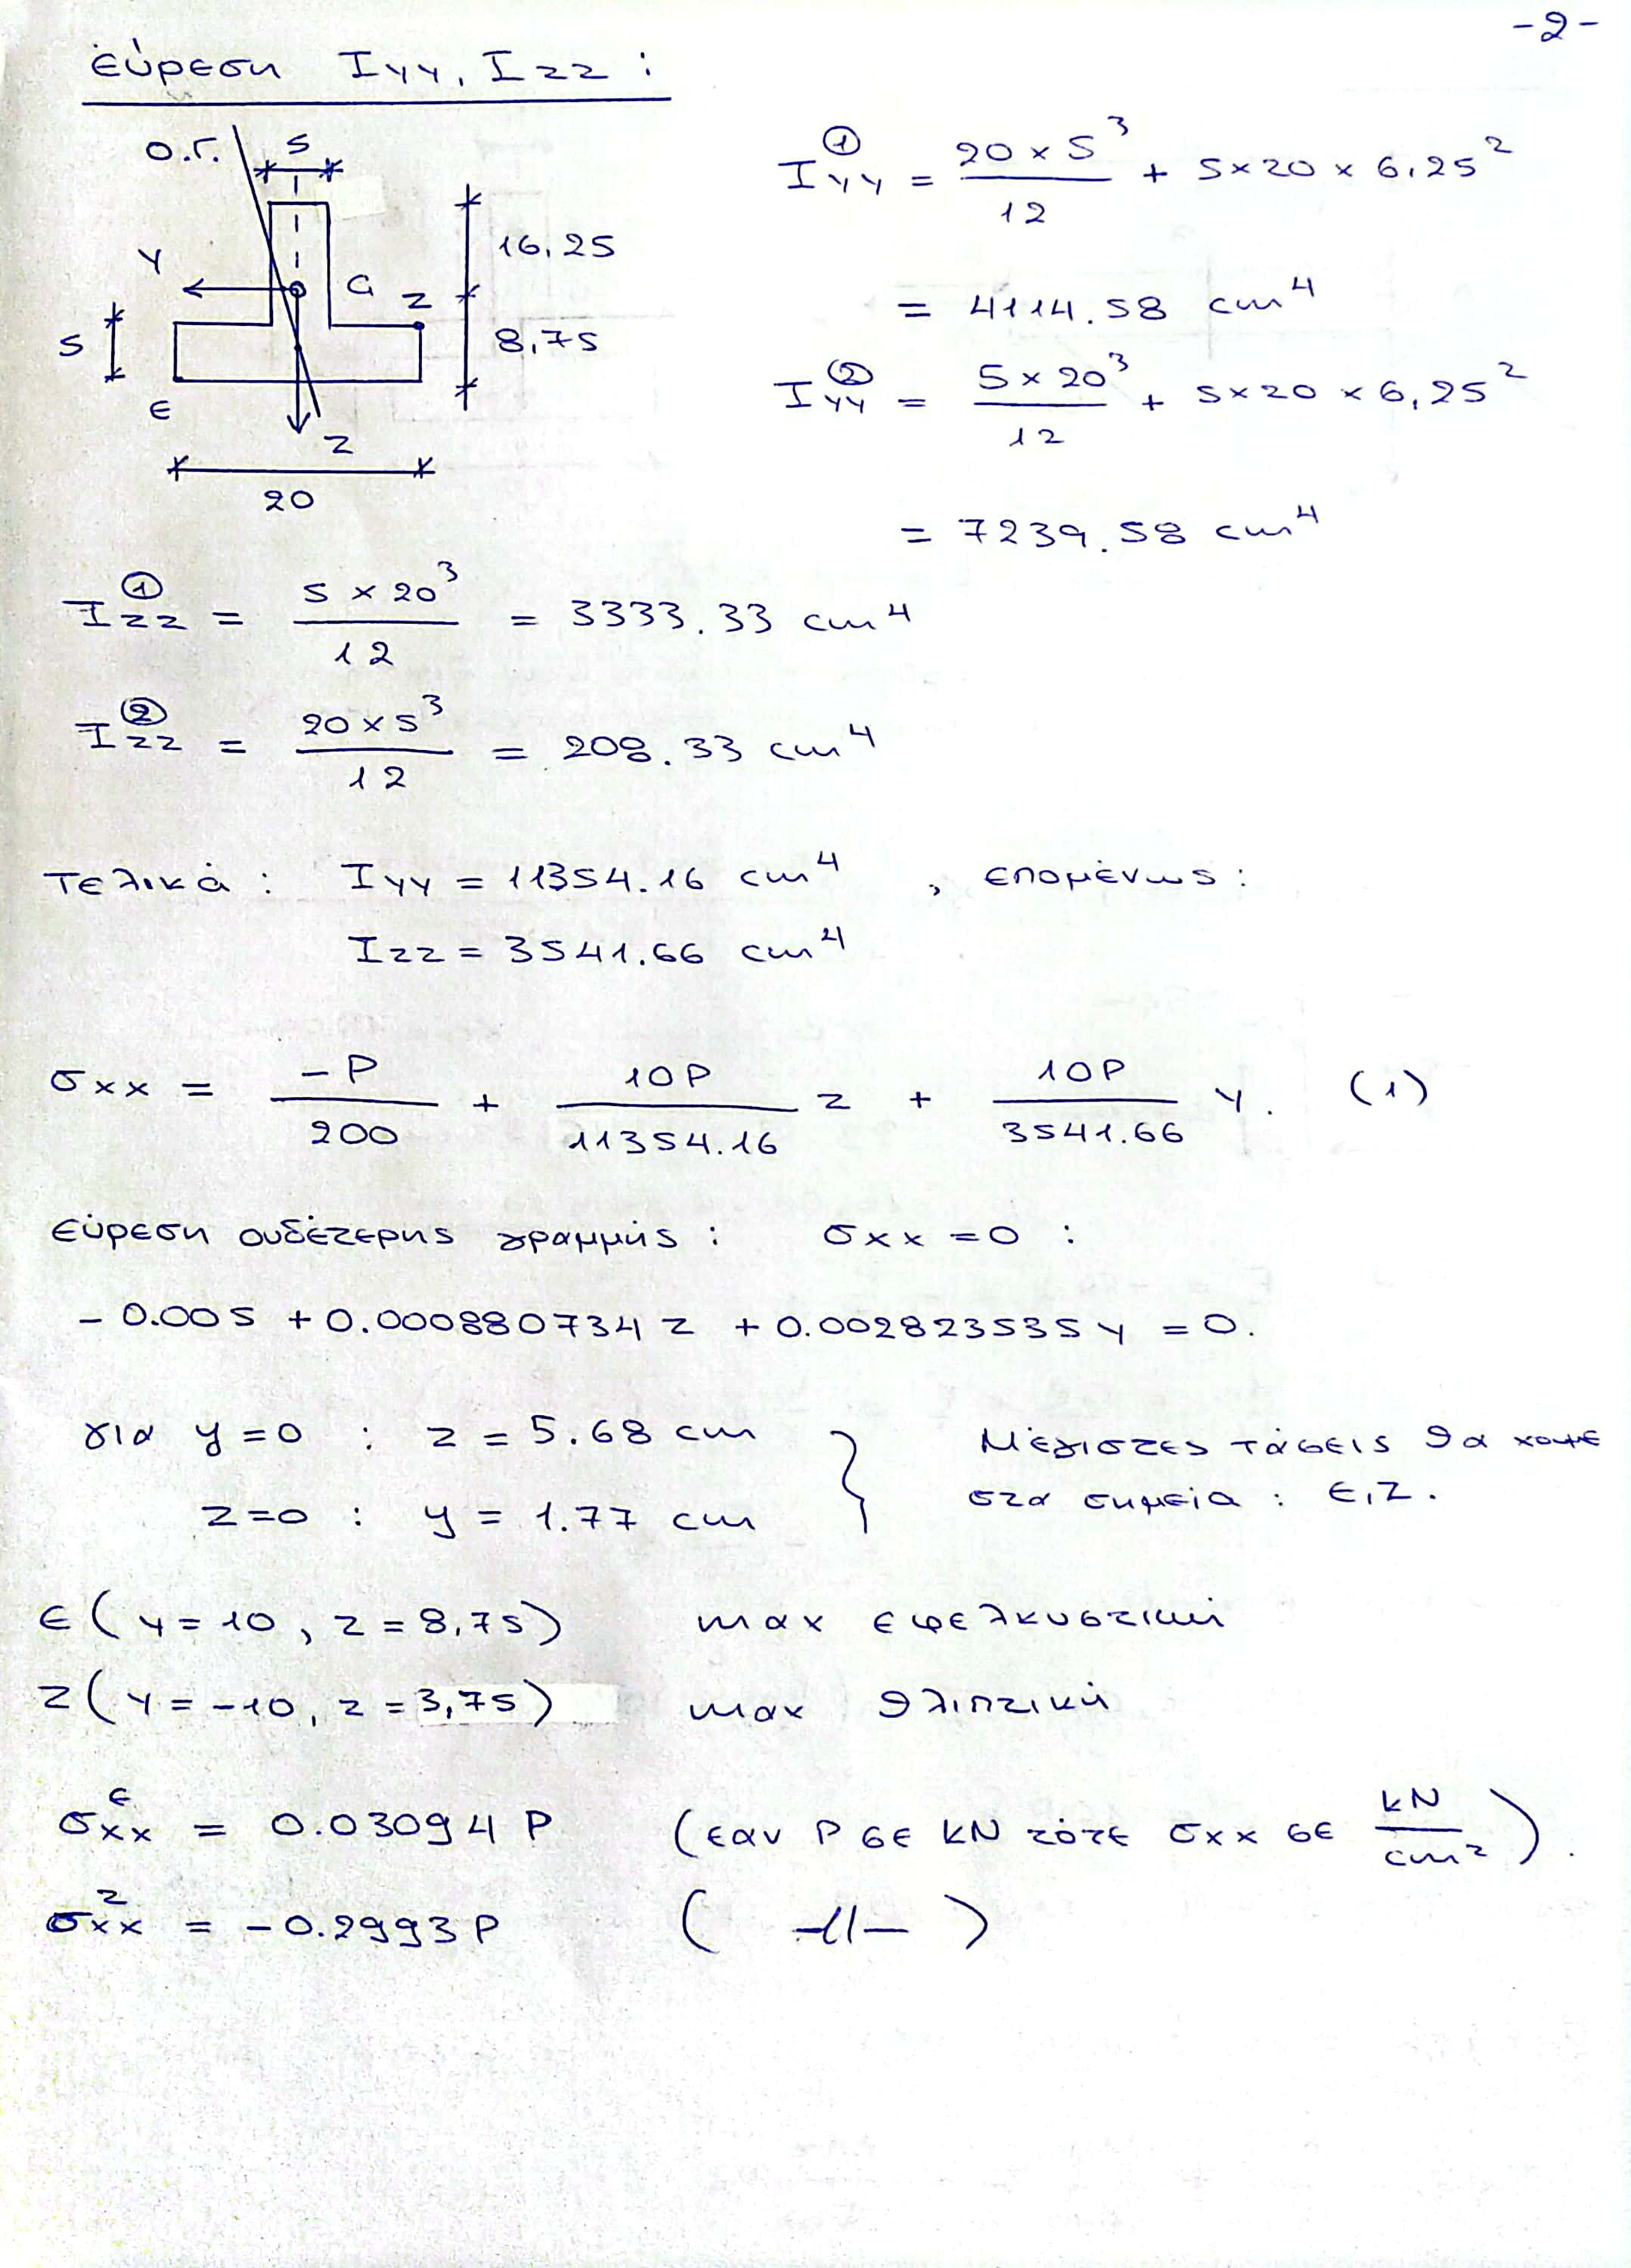 -2-
εύρεση Iyy, Izz :
Ο.Γ.
5
16,25
y
G
Z
5
8,75
Ε
z
20
Iyy① = 20 x 5³ / 12 + 5x20 x 6,25²
= 4114.58 cm⁴
Iyy② = 5 x 20³ / 12 + 5x20 x 6,25²
= 7239.58 cm⁴
Izz① = 5 x 20³ / 12 = 3333.33 cm⁴
Izz② = 20 x 5³ / 12 = 208.33 cm⁴
Τελικά : Iyy = 11354.16 cm⁴ , επομένως :
Izz = 3541.66 cm⁴
σxx = -P / 200 + 10P / 11354.16 z + 10P / 3541.66 y. (1)
εύρεση ουδέτερης γραμμής : σxx = 0 :
- 0.005 + 0.000880734 z + 0.002823535 y = 0.
για y=0 : z = 5.68 cm
z=0 : y = 1.77 cm
Μέγιστες τάσεις θα χουμε
στα σημεία : Ε,Ζ.
Ε ( y = 10 , z = 8,75) max εφελκυστική
Ζ ( y = -10, z = 3,75) max θλιπτική
σxxᴱ = 0.03094 P (εαν P σε kN τότε σxx σε kN / cm²).
σxxᶻ = -0.2993 P ( -//- )